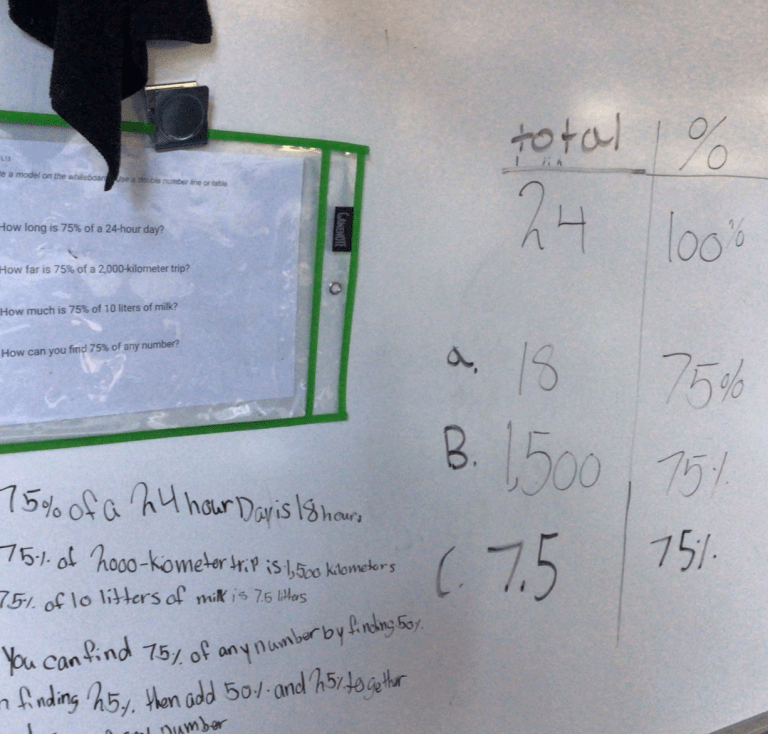 L13
e a model on the whiteboard. Use a double number line or table
How long is 75% of a 24-hour day?
How far is 75% of a 2,000-kilometer trip?
How much is 75% of 10 liters of milk?
How can you find 75% of any number?
GAMENOTE
total %
24 100%
a. 18 75%
B. 1,500 75%
C. 7.5 75%
75% of a 24 hour Day is 18 hours
75% of 2000-kiometer trip is 1,500 kilometers
75% of 10 litters of milk is 7.5 litters
You can find 75% of any number by finding 50%
n finding 25%. then add 50% and 25% together
number